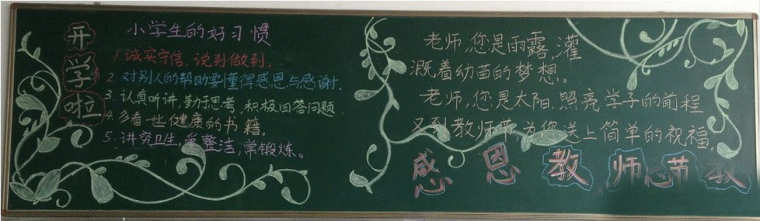 开学啦
小学生的好习惯
1.诚实守信，说到做到.
2.对别人的帮助要懂得感恩与感谢.
3.认真听讲,勤于思考,积极回答问题
4.多看一些健康的书籍.
5.讲究卫生,爱整洁,常锻炼.
老师,您是雨露,灌
溉着幼苗的梦想.
老师,您是太阳,照亮学子的前程
又到教师节,为您送上简单的祝福.
感恩教师节